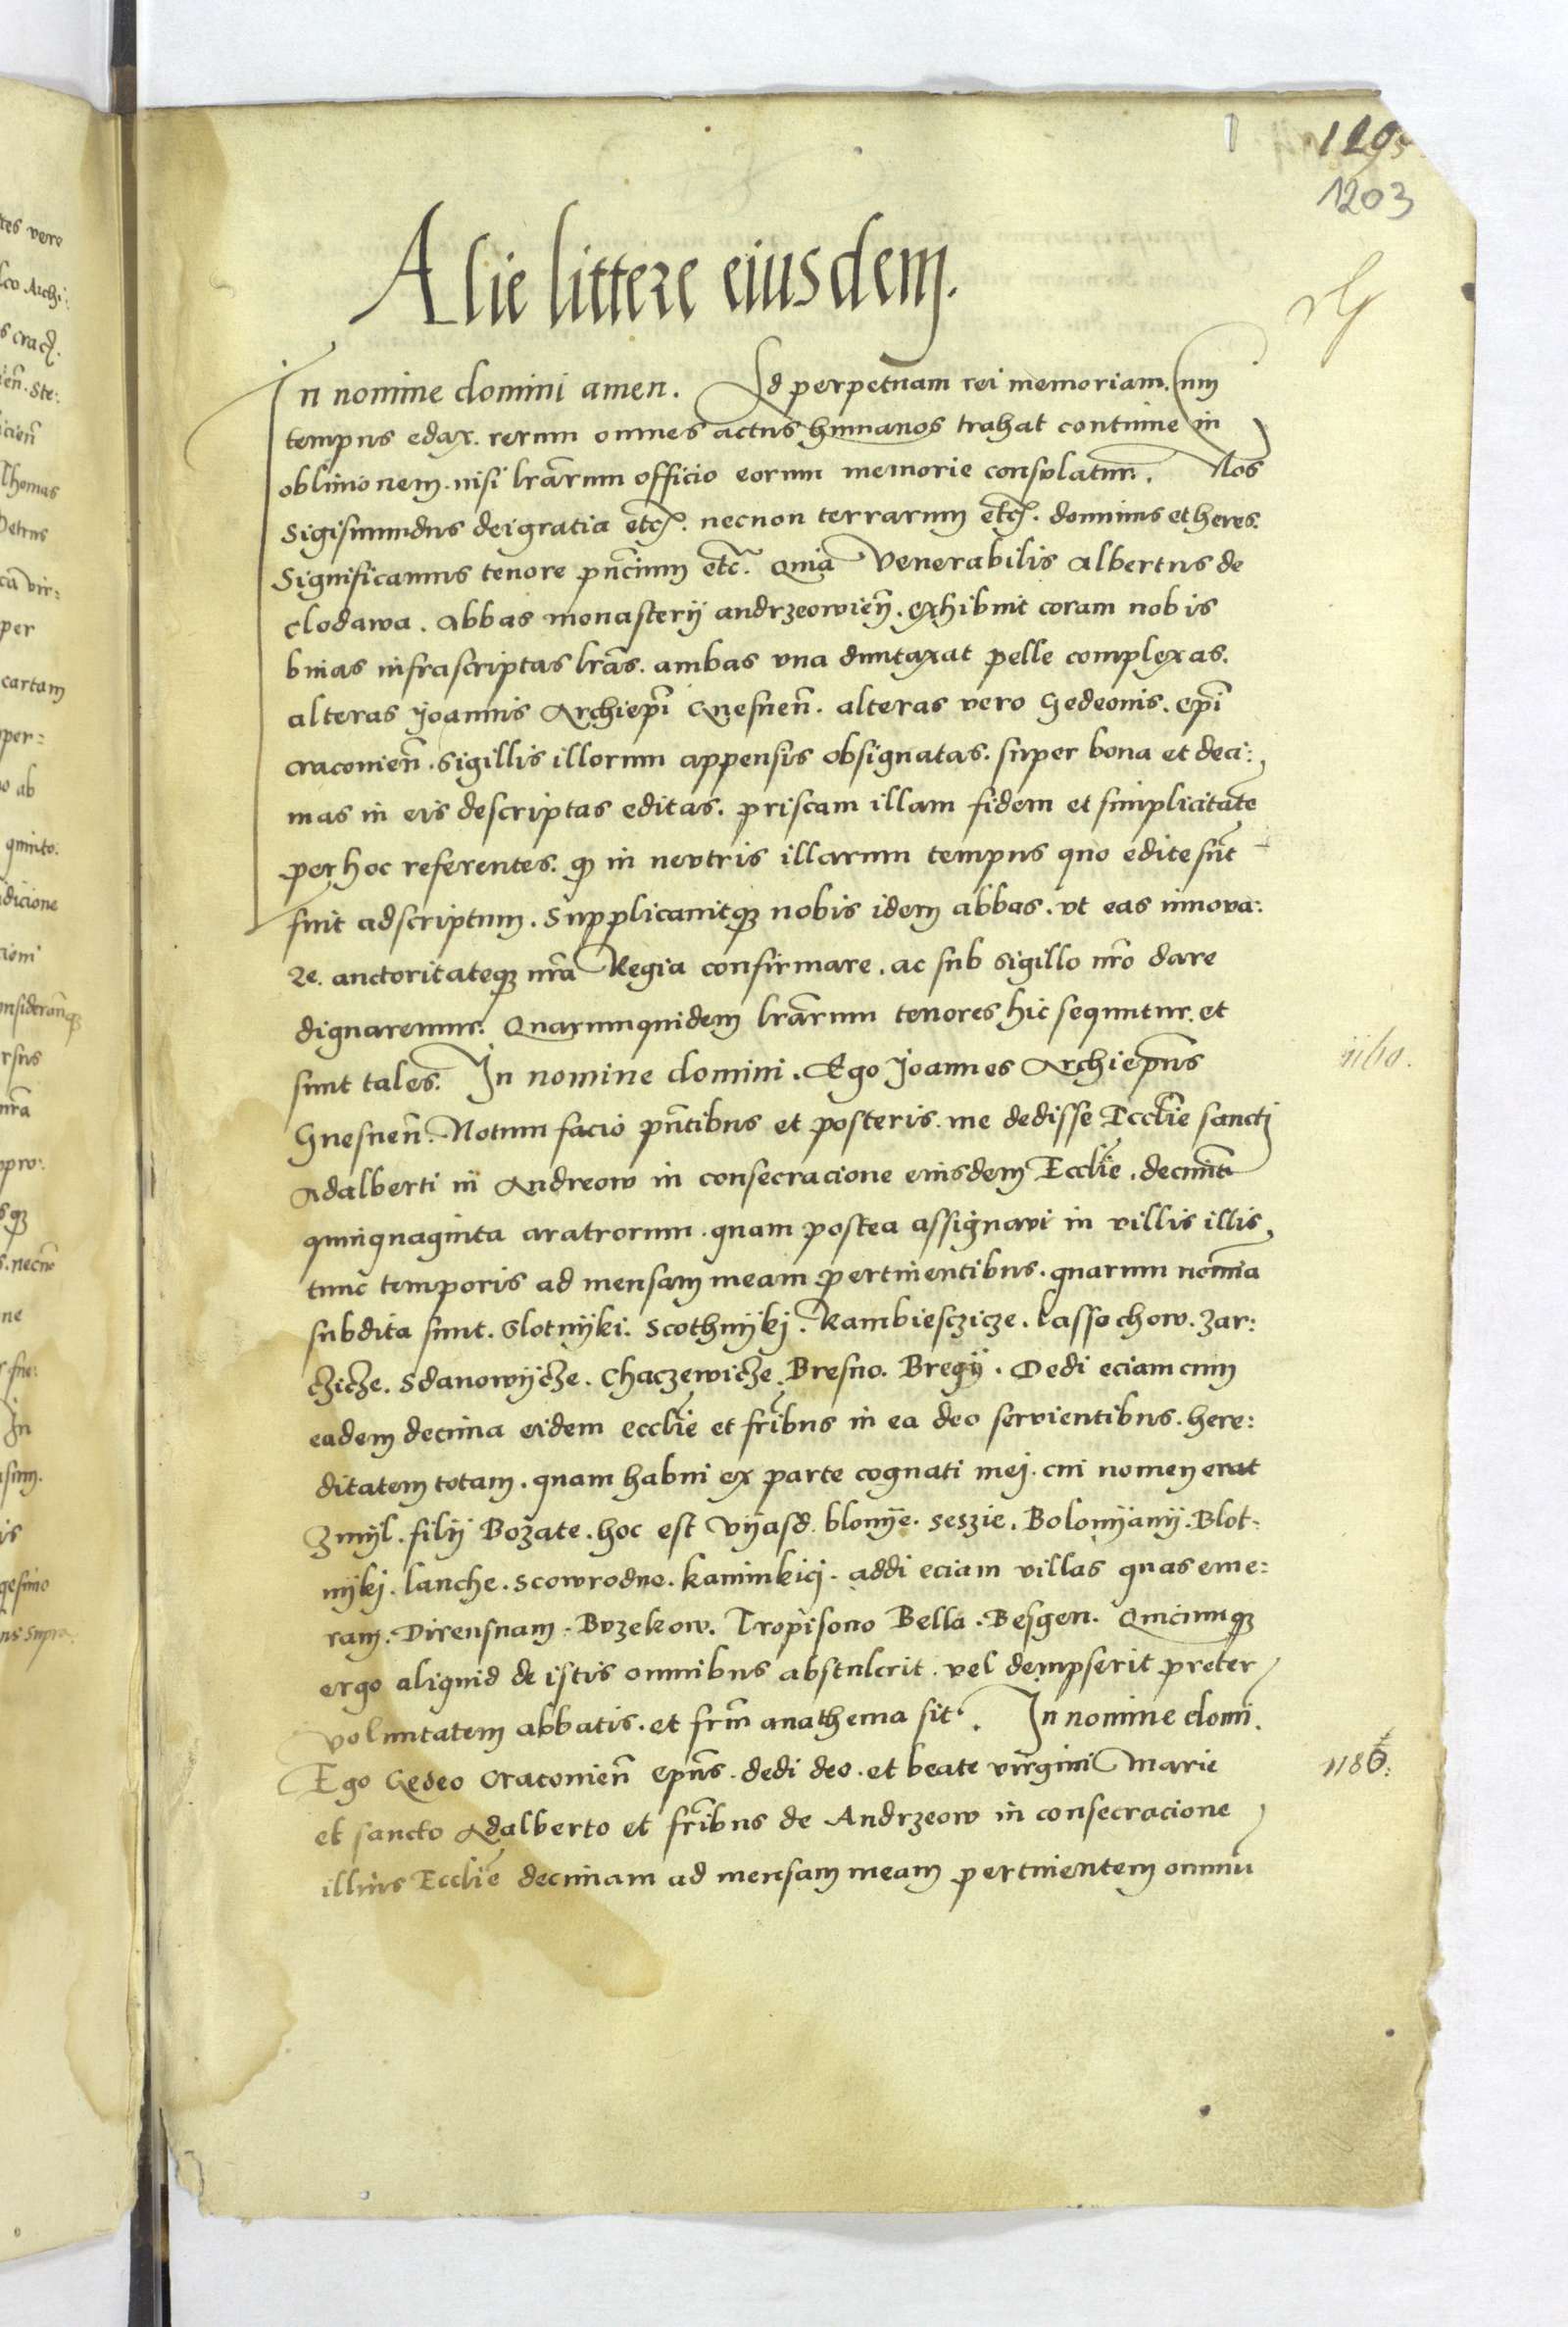 1205
1203
Alie littere eiusdem.
In nomine domini amen. Ad perpetuam rei memoriam. Cum
tempus edax. rerum omnes actus humanos trahat continue in
obliuionem. nisi lrarum officio eorum memorie consulatur. Nos
Sigismundus dei gratia etc. necnon terrarum etc. dominus et heres.
Significamus tenore pncium etc. Quia Venerabilis Albertus de
Clodawa. Abbas monasterij andrzeowien. exhibuit coram nobis
binas infrascriptas lras. ambas vna duntaxat pelle complexas.
alteras Joannis Archiepi Gnesnen. alteras vero Gedeonis. epi
cracouien. sigillis illorum appensis obsignatas. super bona et deci:
mas in eis descriptas editas. priscam illam fidem et simplicitate
per hoc referentes. q in neutris illarum tempus quo edite sunt
fuit adscriptum. Supplicauitq nobis idem abbas. vt eas innoua:
re. auctoritateq nra Regia confirmare. ac sub sigillo nro dare
dignaremur. Quarumquidem lrarum tenores hic sequntur. et
sunt tales. In nomine domini. Ego Joannes Archiepus
Gnesnen. Notum facio pntibus et posteris. me dedisse Ecclie sancti
Adalberti in Andreow in consecracione eiusdem Ecclie. decimam
quinquaginta aratrorum. quam postea assignaui in villis illis
tunc temporis ad mensam meam pertinentibus. quarum nomina
subdita sunt. Slotnyki. Scothnykj. Rambiesczicze. Lassochow. Zar:
cziche. Sdanowyche. Chaczewiche. Bresno. Bregy. Dedi eciam cum
eadem decima eidem ecclie et fribus in ea deo seruientibus. here:
ditatem totam. quam habui ex parte cognati mei. cui nomen erat
Zmyl. filij Bozate. hoc est Vyasd. blonye. seszie. Bolomyany. Blot:
nykj. lanche. scowrodno. kaminkici. addi eciam villas quas eme:
ram. Dirensnam. Buzekow. Tropisono Bella. Besgen. Quicunq
ergo aliquid de istis omnibus abstulerit. vel dempserit preter
voluntatem abbatis. et frm anathema sit. In nomine domi.
Ego Gedeo Cracouien epus. dedi deo. et beate virgini Marie
1186:
et sancto Adalberto et fribus de Andrzeow in consecracione
illius Ecclie decimam ad mensam meam pertinentem omniu